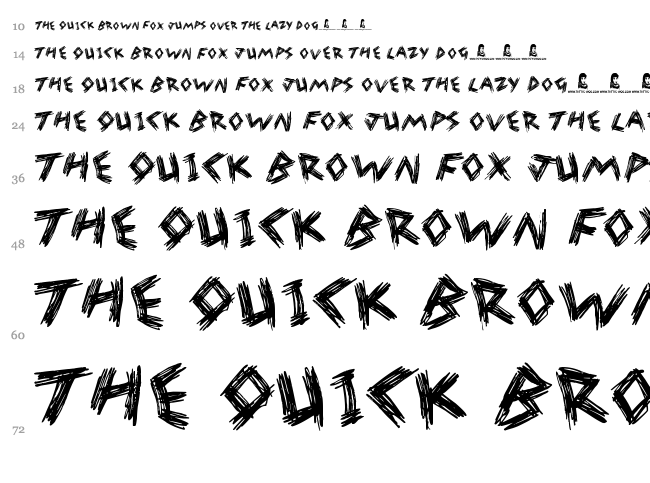 10 THE QUICK BROWN FOX JUMPS OVER THE LAZY DOG
14 THE QUICK BROWN FOX JUMPS OVER THE LAZY DOG
18 THE QUICK BROWN FOX JUMPS OVER THE LAZY DOG
24 THE QUICK BROWN FOX JUMPS OVER THE LA
36 THE QUICK BROWN FOX JUMP
48 THE QUICK BROWN FO
60 THE QUICK BROW
72 THE QUICK BRO